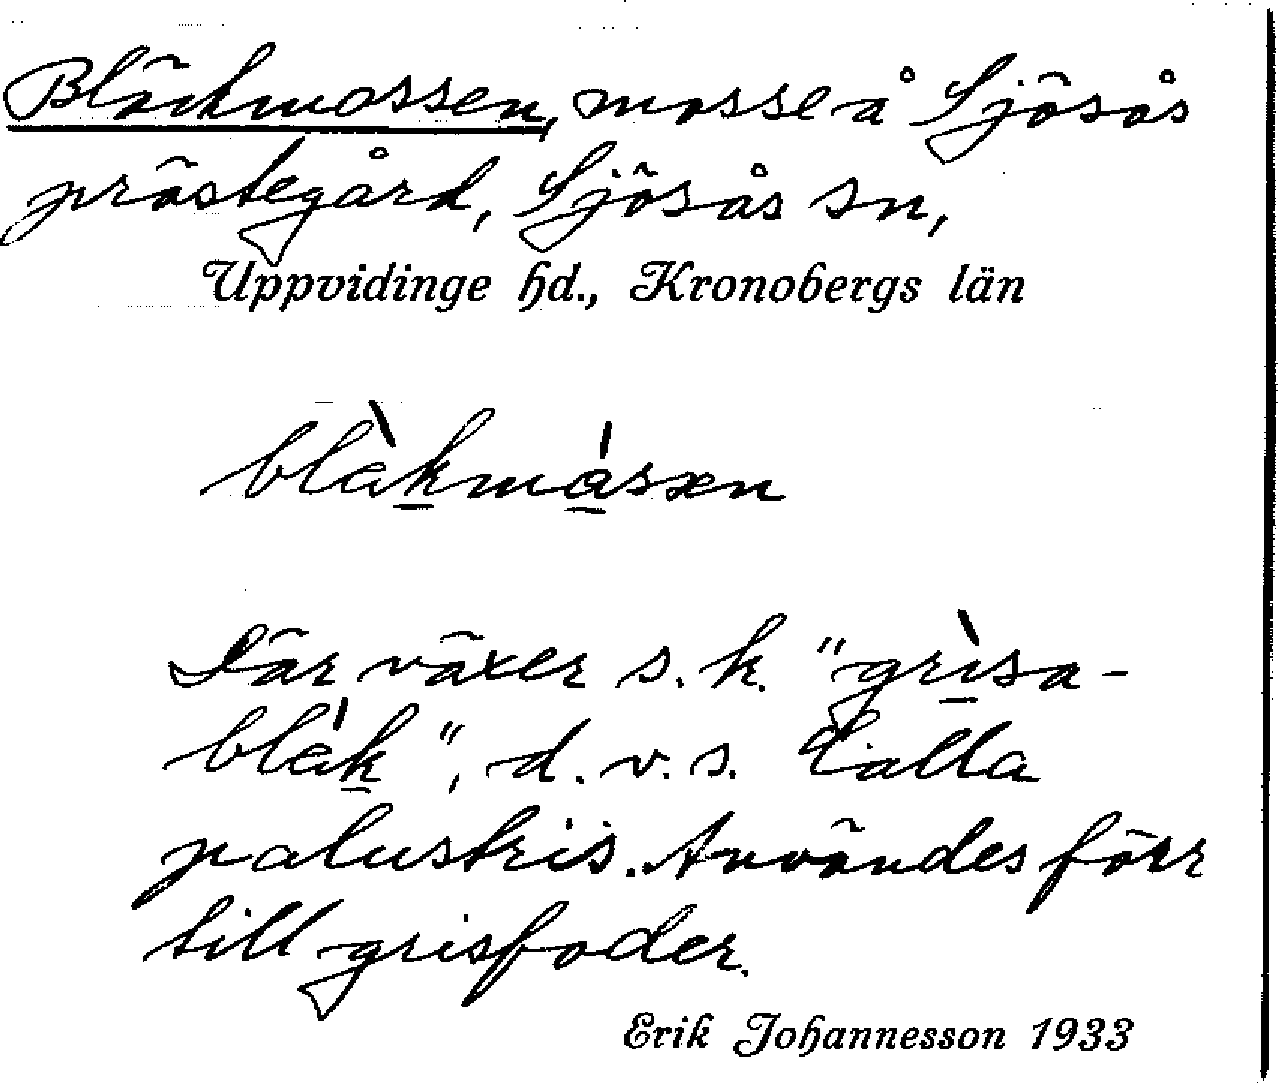 Bläckmossen, mosse å Sjösås
prästegård, Sjösås sn,
Uppvidinge hd., Kronobergs län
blàkmásən
Där växer s. k. "grìsa-
blák", d. v. s. Calla
palustris. Användes förr
till grisfoder.
Erik Johannesson 1933